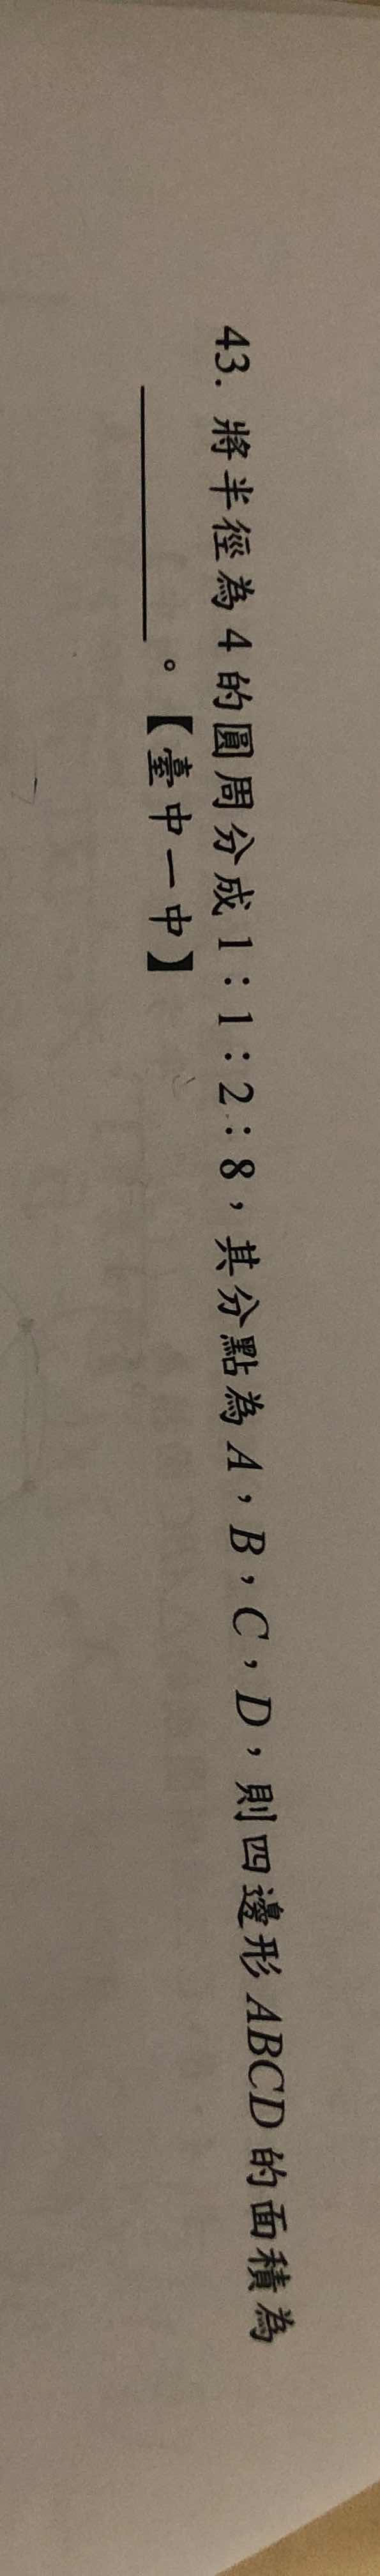 43. 將半徑為 4 的圓周分成 1：1：2：8，其分點為 A，B，C，D，則四邊形 ABCD 的面積為
________。【臺中一中】